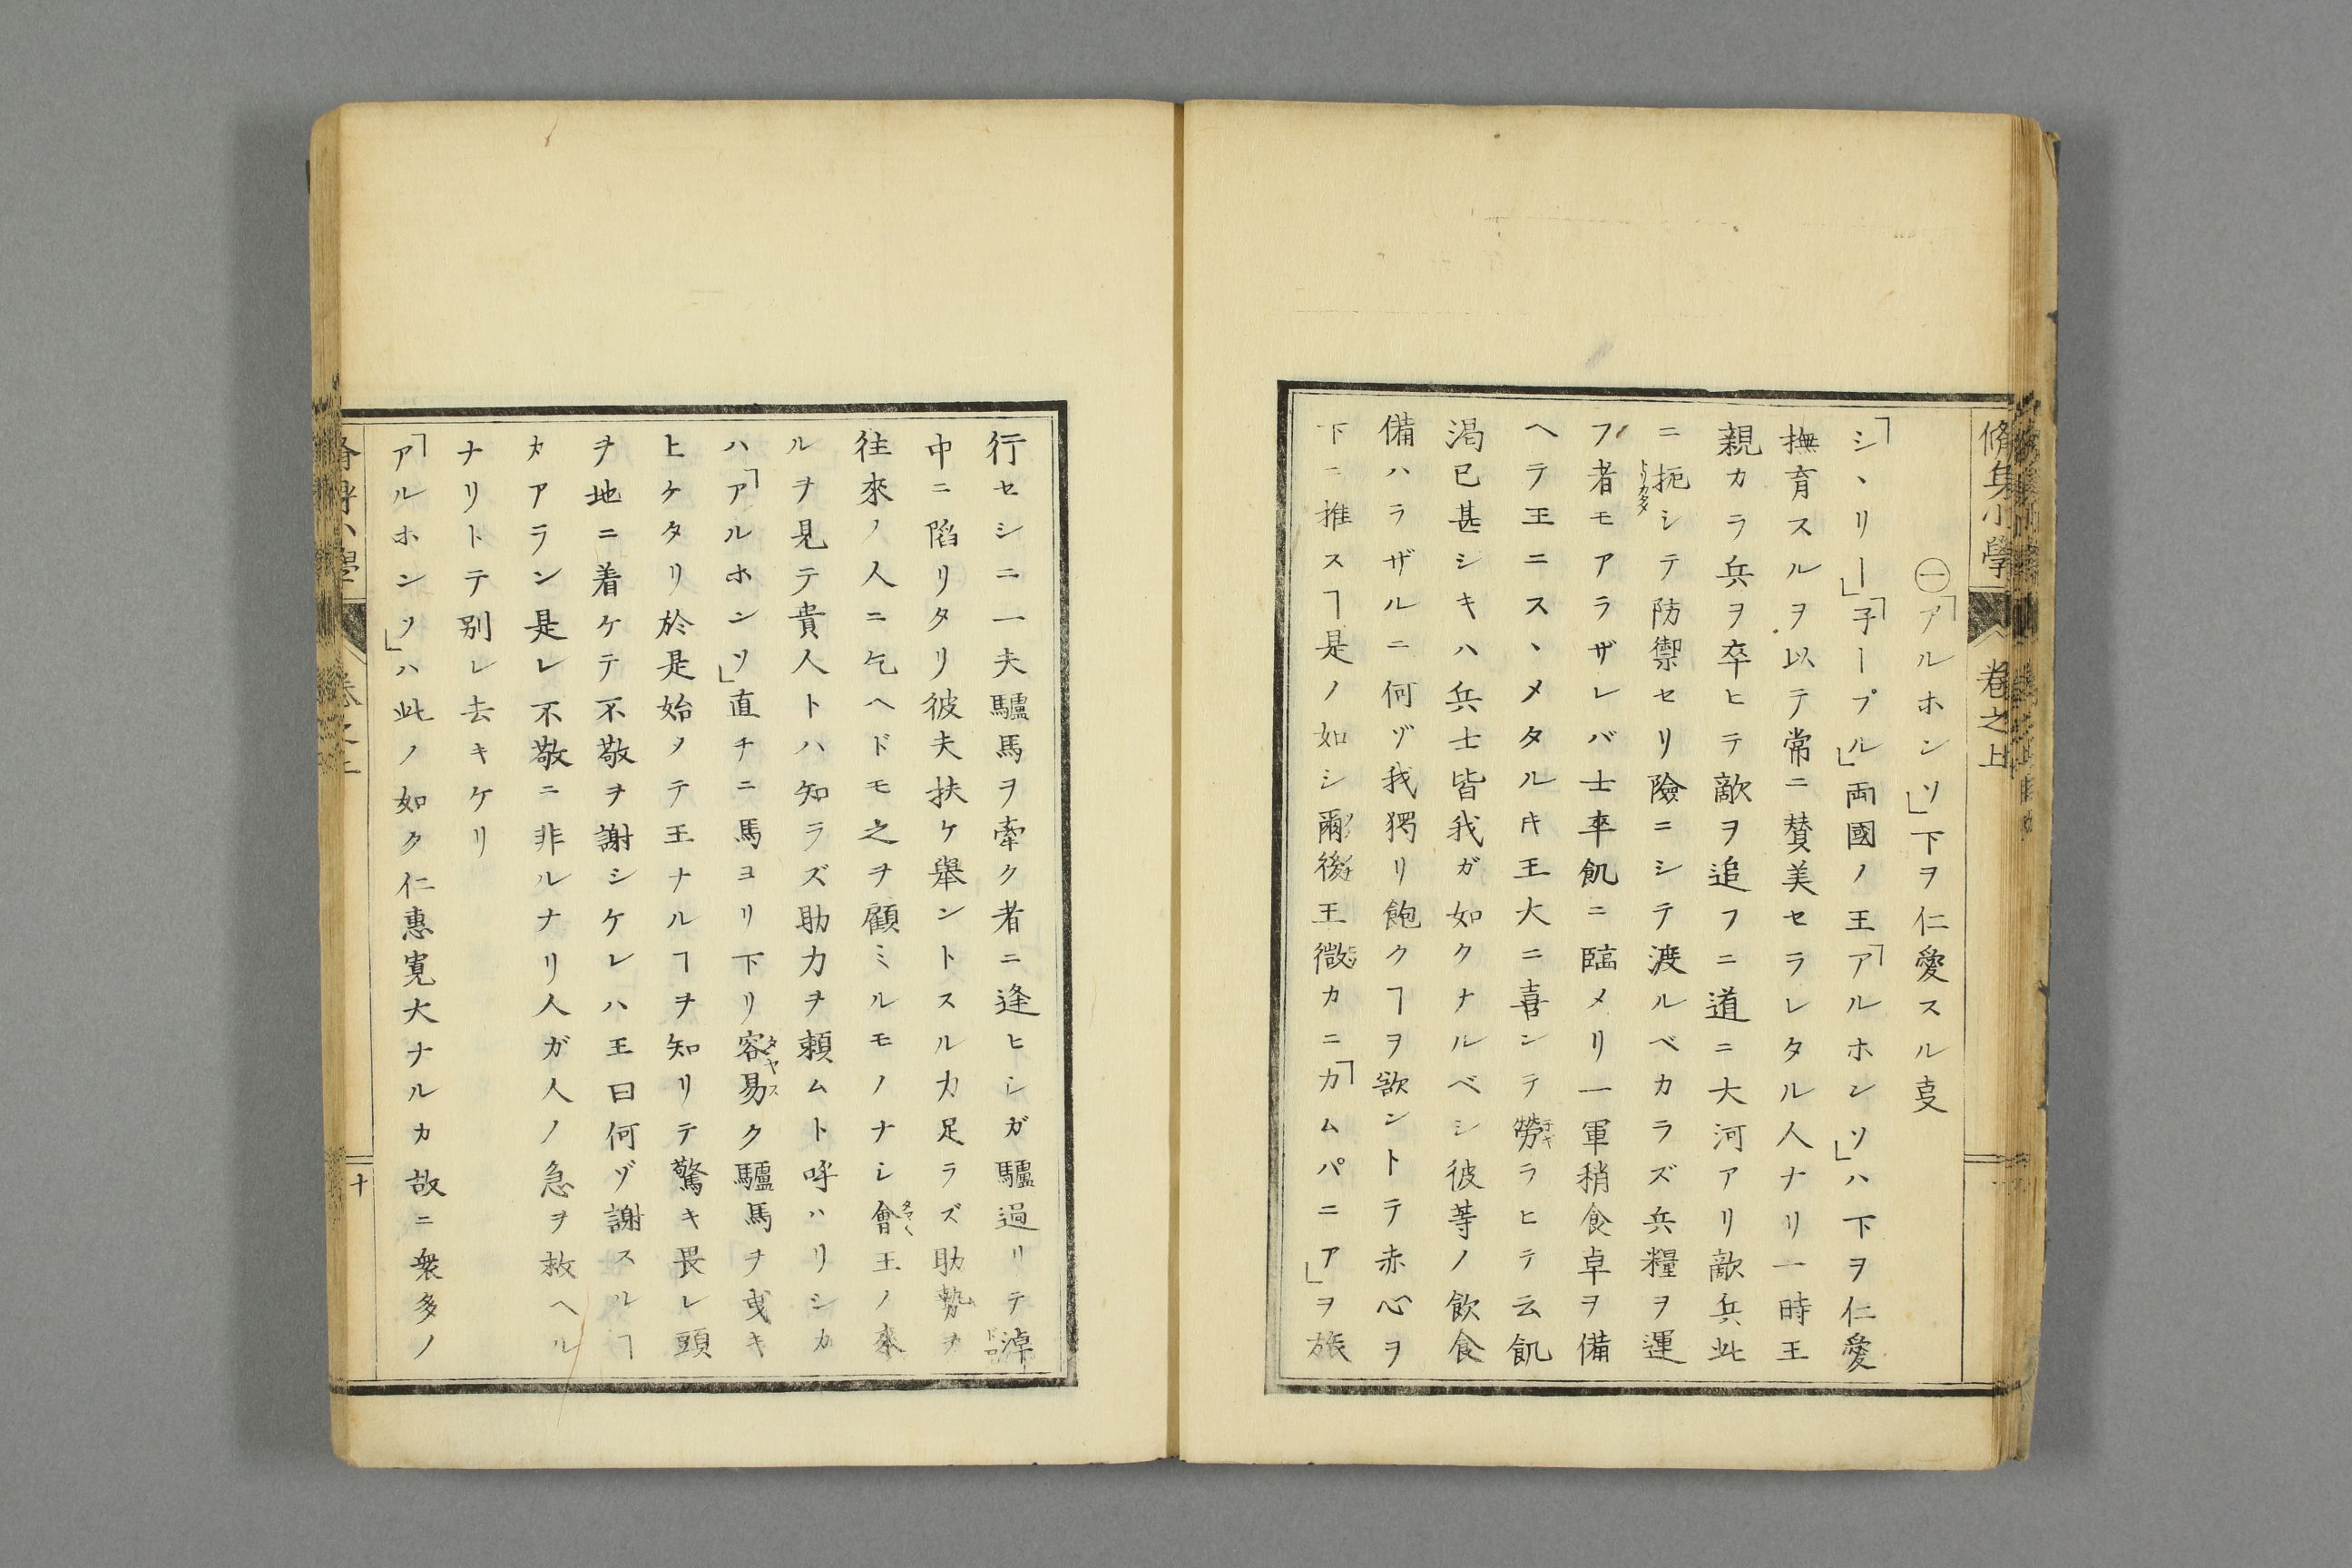 脩身小學
卷之上
㊀「アルホンソ」下ヲ仁愛スル㕝
「シヽリー」「子ープル」両國ノ王「アルホンソ」ハ下ヲ仁愛
撫育スルヲ以テ常ニ賛美セラレタル人ナリ一時王
親カラ兵ヲ卒ヒテ敵ヲ追フニ道ニ大河アリ敵兵此
ニ扼シテ防禦セリ險ニシテ渡ルベカラズ兵糧ヲ運
トリカタメ
フ者モアラザレバ士卒飢ニ臨メリ一軍稍食卓ヲ備
ヘラ王ニスヽメタルキ王大ニ喜ンテ勞ラヒテ云飢
渇已甚シキハ兵士皆我ガ如クナルベシ彼等ノ飲食
備ハラザルニ何ゾ我獨リ飽クヿヲ欲ントテ赤心ヲ
下ニ推スヿ是ノ如シ爾後王微カニ「カムパニア」ヲ旅
行セシニ一夫驢馬ヲ牽ク者ニ逢ヒシガ驢過リテ淖
ドロ
中ニ陷リタリ彼夫扶ケ舉ントスル力足ラズ助勢ヲ
往來ノ人ニ乞ヘドモ之ヲ顧ミルモノナシ會王ノ來
タマ〱
ルヲ見テ貴人トハ知ラズ助力ヲ頼ムト呼ハリシカ
ハ「アルホンソ」直チニ馬ヨリ下リ容易ク驢馬ヲ曳キ
タヤス
ヒケタリ於是始メテ王ナルヿヲ知リテ驚キ畏レ頭
ヲ地ニ着ケテ不敬ヲ謝シケレハ王曰何ゾ謝スルヿ
カアラン是レ不敬ニ非ルナリ人ガ人ノ急ヲ救ヘル
ナリトテ別レ去キケリ
「アルホンソ」ハ此ノ如ク仁惠寛大ナルカ故ニ衆多ノ
十